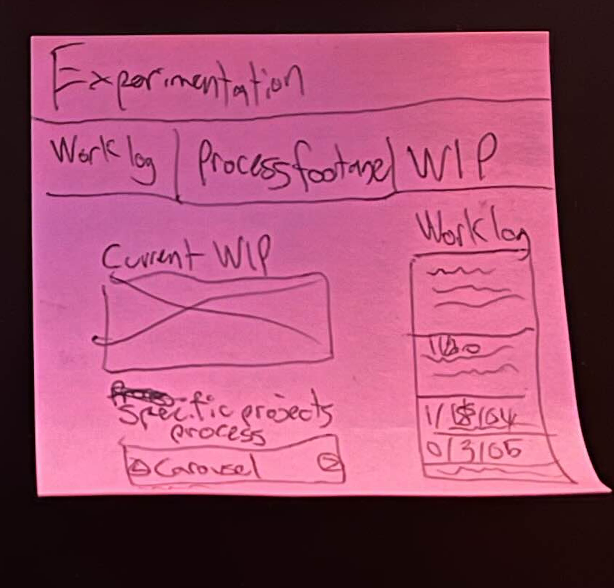 Experimentation
Worklog | Process footage | WIP
Current WIP
Worklog
Specific projects
process
Carousel
0/3/05